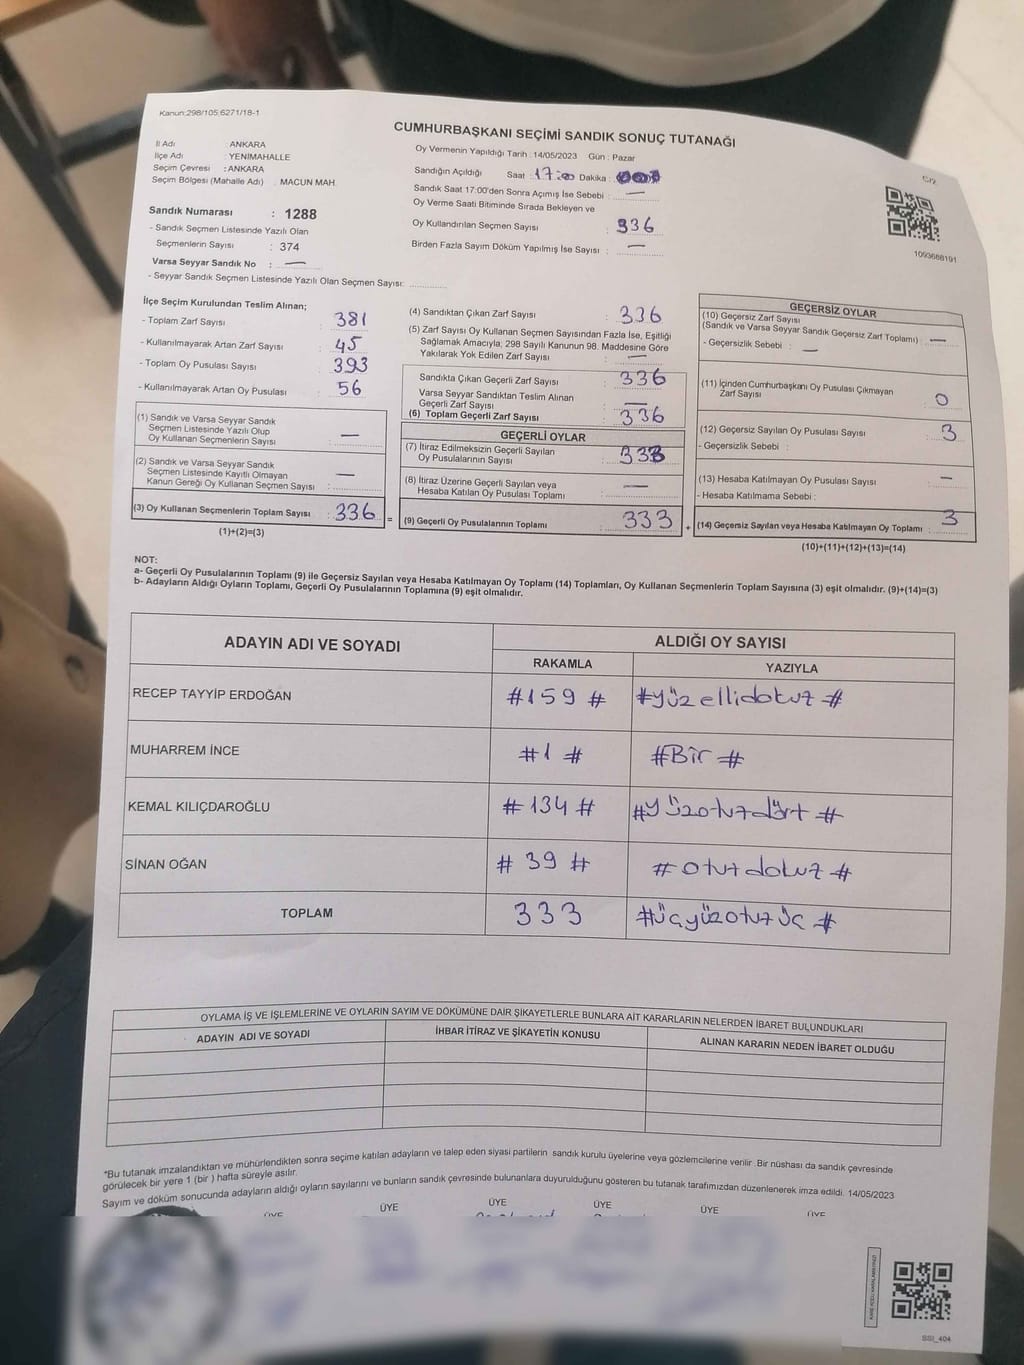 Kanun:298/105,6271/18-1
CUMHURBAŞKANI SEÇİMİ SANDIK SONUÇ TUTANAĞI
İl Adı : ANKARA
İlçe Adı : YENİMAHALLE
Seçim Çevresi : ANKARA
Seçim Bölgesi (Mahalle Adı) : MACUN MAH.
Oy Vermenin Yapıldığı Tarih : 14/05/2023 Gün : Pazar
Sandığın Açıldığı Saat : 17:00 Dakika :
Sandık Saat 17:00'den Sonra Açımış İse Sebebi : —
Oy Verme Saati Bitiminde Sırada Bekleyen ve
Oy Kullandırılan Seçmen Sayısı : 336
Birden Fazla Sayım Döküm Yapılmış İse Sayısı : —
1093688191
Sandık Numarası : 1288
- Sandık Seçmen Listesinde Yazılı Olan
Seçmenlerin Sayısı : 374
Varsa Seyyar Sandık No : —
- Seyyar Sandık Seçmen Listesinde Yazılı Olan Seçmen Sayısı:
İlçe Seçim Kurulundan Teslim Alınan;
- Toplam Zarf Sayısı : 381
- Kullanılmayarak Artan Zarf Sayısı : 45
- Toplam Oy Pusulası Sayısı : 393
- Kullanılmayarak Artan Oy Pusulası : 56
(1) Sandık ve Varsa Seyyar Sandık
Seçmen Listesinde Yazılı Olup
Oy Kullanan Seçmenlerin Sayısı : —
(2) Sandık ve Varsa Seyyar Sandık
Seçmen Listesinde Kayıtlı Olmayan
Kanun Gereği Oy Kullanan Seçmen Sayısı : —
(3) Oy Kullanan Seçmenlerin Toplam Sayısı : 336
(1)+(2)=(3)
=
(4) Sandıktan Çıkan Zarf Sayısı : 336
(5) Zarf Sayısı Oy Kullanan Seçmen Sayısından Fazla İse, Eşitliği
Sağlamak Amacıyla; 298 Sayılı Kanunun 98. Maddesine Göre
Yakılarak Yok Edilen Zarf Sayısı : —
Sandıkta Çıkan Geçerli Zarf Sayısı : 336
Varsa Seyyar Sandıktan Teslim Alınan
Geçerli Zarf Sayısı : —
(6) Toplam Geçerli Zarf Sayısı : 336
GEÇERLİ OYLAR
(7) İtiraz Edilmeksizin Geçerli Sayılan
Oy Pusulalarının Sayısı : 333
(8) İtiraz Üzerine Geçerli Sayılan veya
Hesaba Katılan Oy Pusulası Toplamı : —
(9) Geçerli Oy Pusulalarının Toplamı : 333
+
GEÇERSİZ OYLAR
(10) Geçersiz Zarf Sayısı
(Sandık ve Varsa Seyyar Sandık Geçersiz Zarf Toplamı) : —
- Geçersizlik Sebebi : —
(11) İçinden Cumhurbaşkanı Oy Pusulası Çıkmayan
Zarf Sayısı : 0
(12) Geçersiz Sayılan Oy Pusulası Sayısı : 3
- Geçersizlik Sebebi :
(13) Hesaba Katılmayan Oy Pusulası Sayısı : —
- Hesaba Katılmama Sebebi :
(14) Geçersiz Sayılan veya Hesaba Katılmayan Oy Toplamı : 3
(10)+(11)+(12)+(13)=(14)
NOT:
a- Geçerli Oy Pusulalarının Toplamı (9) ile Geçersiz Sayılan veya Hesaba Katılmayan Oy Toplamı (14) Toplamları, Oy Kullanan Seçmenlerin Toplam Sayısına (3) eşit olmalıdır. (9)+(14)=(3)
b- Adayların Aldığı Oyların Toplamı, Geçerli Oy Pusulalarının Toplamına (9) eşit olmalıdır.
ADAYIN ADI VE SOYADI ALDIĞI OY SAYISI
RAKAMLA YAZIYLA
RECEP TAYYİP ERDOĞAN #159 # #yüzellidokuz #
MUHARREM İNCE #1 # #Bir #
KEMAL KILIÇDAROĞLU #134 # #yüzotuzdört #
SİNAN OĞAN # 39 # #otuzdokuz #
TOPLAM 333 #üçyüzotuzüç #
OYLAMA İŞ VE İŞLEMLERİNE VE OYLARIN SAYIM VE DÖKÜMÜNE DAİR ŞİKAYETLERLE BUNLARA AİT KARARLARIN NELERDEN İBARET BULUNDUKLARI
ADAYIN ADI VE SOYADI İHBAR İTİRAZ VE ŞİKAYETİN KONUSU ALINAN KARARIN NEDEN İBARET OLDUĞU
*Bu tutanak imzalandıktan ve mühürlendikten sonra seçime katılan adayların ve talep eden siyasi partilerin sandık kurulu üyelerine veya gözlemcilerine verilir. Bir nüshası da sandık çevresinde
görülecek bir yere 1 (bir) hafta süreyle asılır.
Sayım ve döküm sonucunda adayların aldığı oyların sayılarını ve bunların sandık çevresinde bulunanlara duyurulduğunu gösteren bu tutanak tarafımızdan düzenlenerek imza edildi. 14/05/2023
ÜYE ÜYE ÜYE ÜYE ÜYE ÜYE
SSI_404